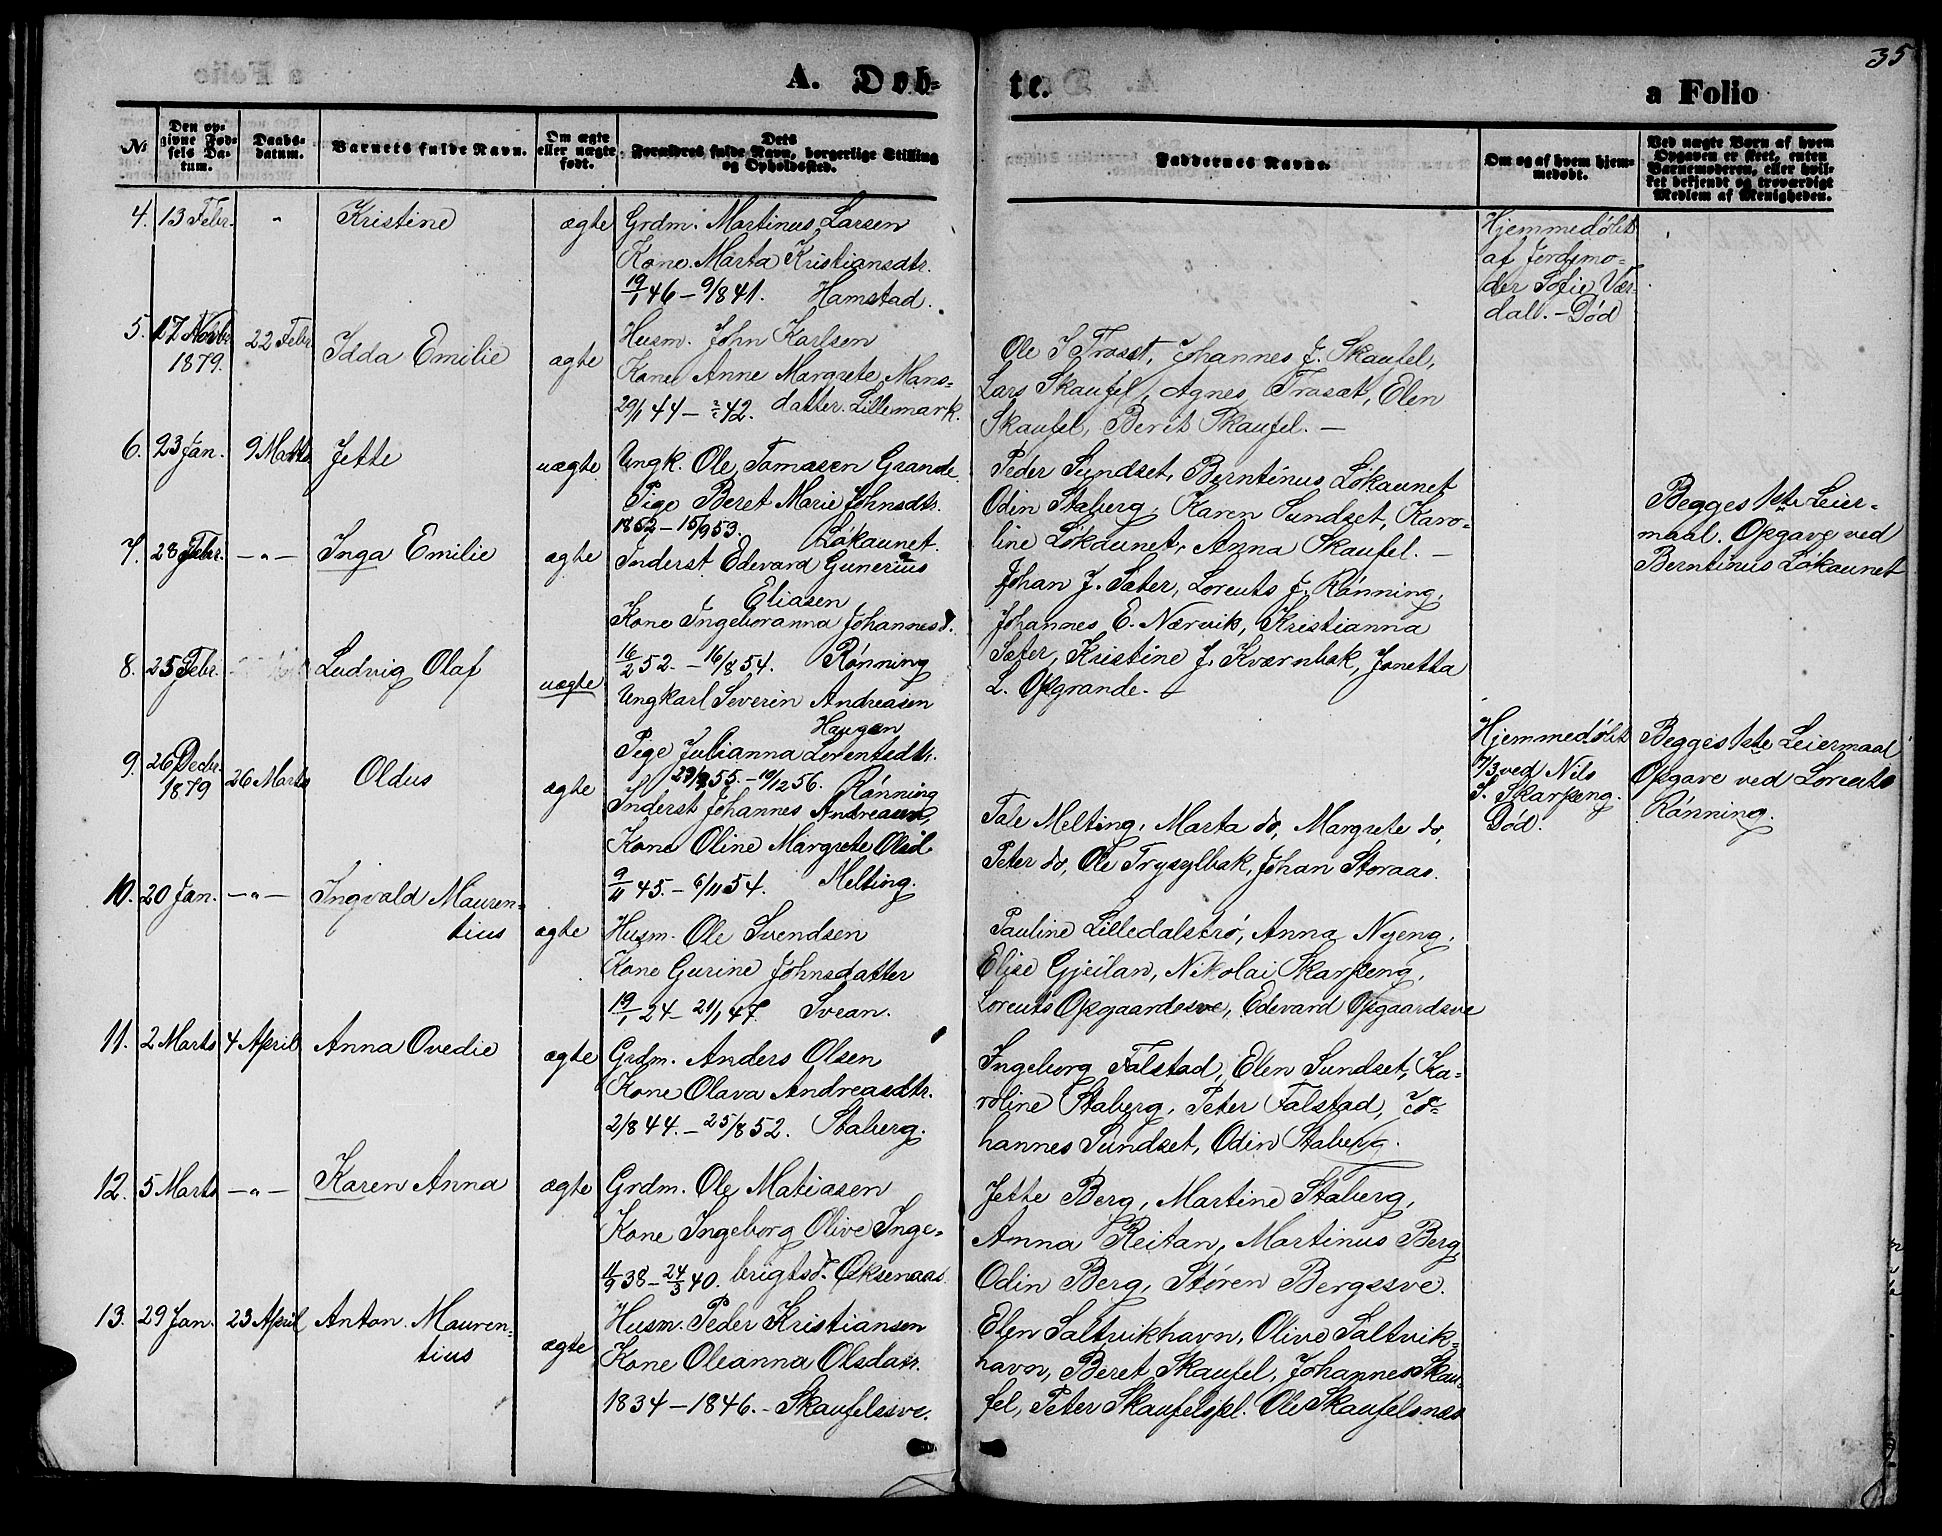 35
A. Døb-
te.
a Folio
№
Den op-
givne Fød-
sels Da-
tum.
Daabs-
datum.
Barnets fulde Navn.
Om ægte
eller uægte
født.
Dets
Forældres fulde Navn, borgerlige Stilling
og Opholdssted.
Faddernes Navne.
Om og af hvem hjem-
medøbt.
Ved uægte Børn af hvem
Opgaven er skeet, enten
Barnemoderen, eller hvil-
ket bekjendt og troværdigt
Medlem af Menigheden.
4. 13 Febr. " Kristine ægte Grdm. Martinus Larsen
Kone Marta Kristiansdtr.
19/1 46 – 9/8 41. Hamstad.
Hjemmedøbt
af Jordjmo-
der Sofie Vær-
dal. – Død
5. 17 Novbr
1879. 22 Febr Idda Emilie ægte Husm. John Karlsen
Kone Anne Margrete Mons-
29/1 44 – 42. datter. Lillemark.
Ole J Trøset, Johannes J. Skaufel,
Lars Skaufel, Agnes Trøsæt, Elen
Skaufel, Berit Skaufel. –
6. 23 Jan. 9 Marts Jette uægte Ungk. Ole Tomasen Grande
Pige Beret Marie Johnsdtr.
1852 – 15/9 53. Løkaunet.
Peder Sundset, Berntinus Løkaunet
Odin Staberg, Karen Sundset, Karo-
line Løkaunet, Anna Skaufel. –
Begges 1ste Leier-
maal. Opgave ved
Berntinus Løkaunet
7. 28 Febr. – " – Inga Emilie ægte Inderst Edevard Gunerius
Eliasen
Kone Ingeboranna Johannesd.
16/2 52. – 16/8 54. Rønning
Johan J. Sæter, Lorents J. Rønning,
Johannes E. Nærvik, Kristianna
Sæter, Kristine J. Kværnbak, Jonetta
L. Opgrande. –
8. 25 Febr. Ludvig Olaf uægte Ungkarl Severin Andreasen
Haugan
Pige Julianna Lorentsdtr.
55. – 19/12 56. Rønning
Hjemmedøbt
7/3 ved Nils
S. Skarpeng.
Død.
Begges 1ste Leiermaal
Opgave ved Lorents
Rønning.
9. 26 Decbr.
1879 26 Marts Oldus ægte Inderst Johannes Andreasen,
Kone Oline Margrete Olsd.
9/11 45. – 6/11 54. Melting.
Tale Melting, Marta do, Margrete do,
Peter do, Ole Trysylbak, Johan Storaas.
10. 20 Jan. – " – Ingvald Mauren-
tius ægte Husm. Ole Svendsen
Kone Gurine Johnsdatter
19/1 24 – 21/1 47. Svean.
Pauline Lilledalstrø, Anna Nyeng,
Elise Gjeilan, Nikolai Skarpeng,
Lorents Opgaardssve, Edevard Opgaardsve
11. 2 Marts 4 April Anna Ovedie ægte Grdm. Anders Olsen
Kone Olava Andreasdtr.
2/8 44. – 25/8 52. Staberg.
Ingeborg Falstad, Elen Sundset, Ka-
roline Staberg, Peter Falstad, Jo-
hannes Sundset, Odin Staberg.
12. 5 Marts – " – Karen Anna ægte Grdm. Ole Matiasen
Kone Ingeborg Olive Inge-
11/9 38 – 24/3 40. brigtsd. Øksenaas
Jette Berg, Martine Staberg,
Anna Reitan, Martinus Berg,
Odin Berg, Støren Bergssve.
13. 29 Jan. 23 April Anton Mauren-
tius ægte Husm. Peder Kristiansen
Kone Oleanna Olsdatr.
1834 – 1846. – Skaufelssve.
Elen Saltvikhavn, Olive Saltvik-
havn, Beret Skaufel, Johannes Skau-
fel, Peter Skaufelspl. Ole Skaufelsnæs